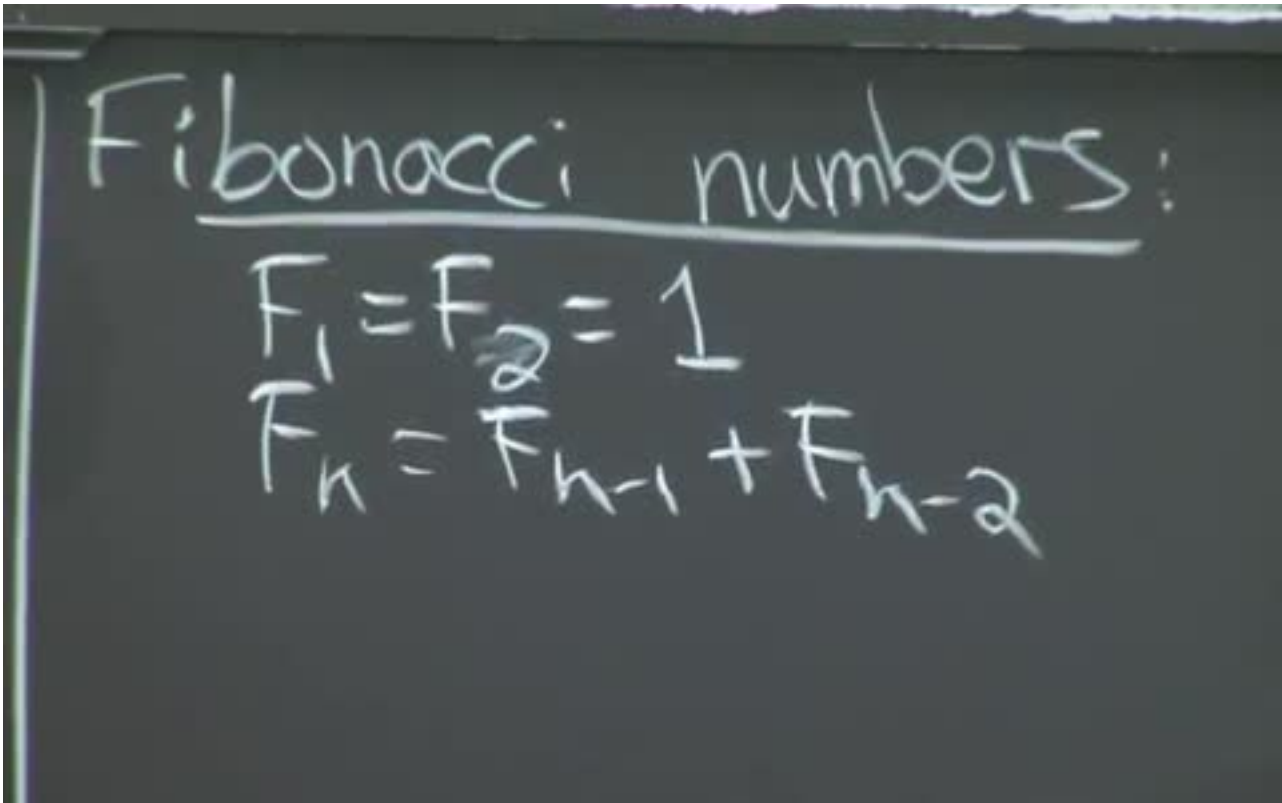 Fibonacci numbers:
F₁ = F₂ = 1
Fₙ = Fₙ₋₁ + Fₙ₋₂